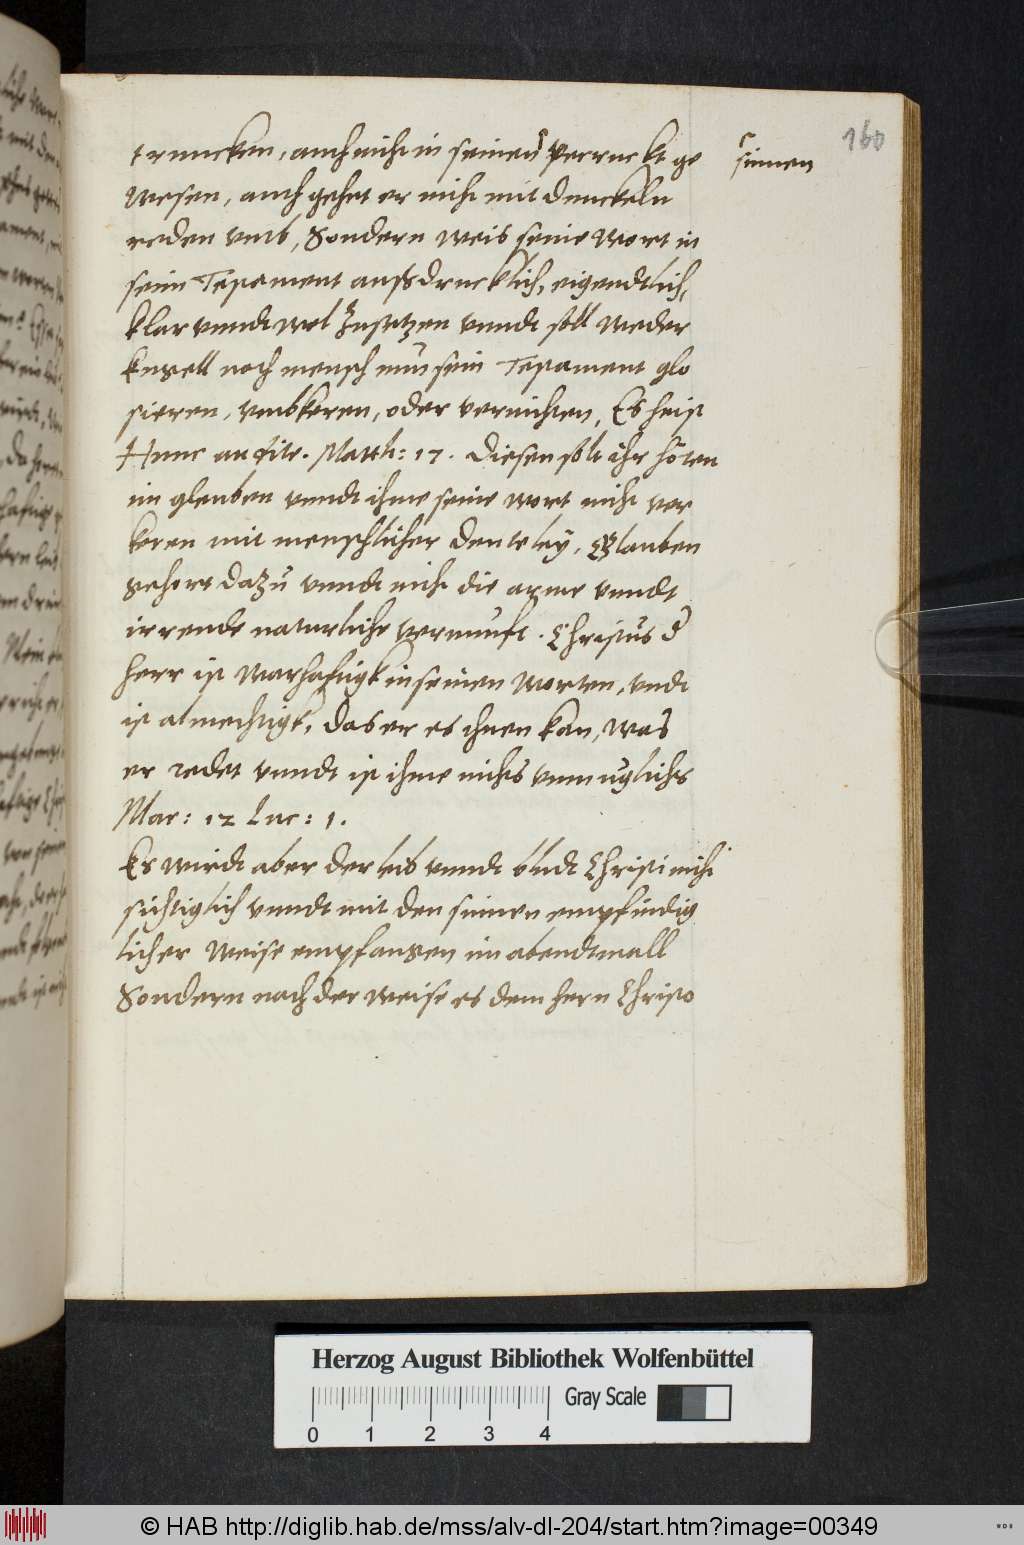 160
truncken, auch nicht in seinen verruckt ge
sinnen
wesen, auch gehet er nicht mit dunckeln
reden umb, Sondern weis seine wort in
seim Testament außdrucklich, eigendtlich,
klar unndt wol zusetzen unndt soll weder
Engell noch mensch nun sein Testament glo
sieren, umbkeren, oder vernichten, Es heist
Hunc audite. Matth: 17. diesen solt ihr hören
im glauben unndt ihme seine wort nicht ver
keren mit menschlicher deuteley, Glauben
gehort dazu unndt nicht die arme unndt
irrende naturliche vernunfft. Christus d
herr ist warhafftigk in seinen worten, undt
ist almechtigk, das er es thuen kan, was
er redet unndt ist ihme nichts unmuglichs
Mar: 12 Luc: 1.
Es wirdt aber der leib unndt bludt Christi nicht
sichtiglich unndt mit den sinnen empfindig
licher weise empfangen im abendtmall
Sondern nach der weise es dem hern Christo
Herzog August Bibliothek Wolfenbüttel
Gray Scale
0 1 2 3 4
© HAB http://diglib.hab.de/mss/alv-dl-204/start.htm?image=00349